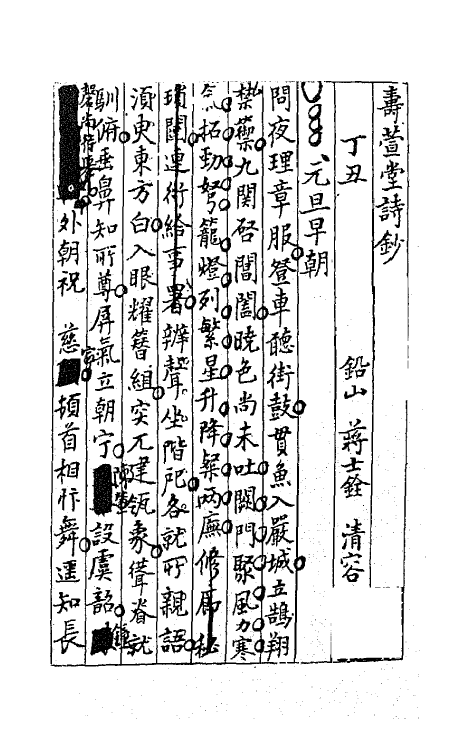 壽萱堂詩鈔
丁丑 鉛山 蔣士銓 清容
元旦早朝
問夜理章服登車聽街鼓貫魚入嚴城立鵠翔
禁藥九関啓閶闔曉色尚未吐闕門聚風力寒
氣拓勁弩籠燈列繁星升降粲兩廡修馬秘
瑣闥連術給事署辨聲坐階戺各就所親語
須臾東方白入眼耀簪組突兀建瓴象聳脊就
馴俯垂鼻知所尊屏氣立朝宁陳鹵設虞韶鍾
磬尚搭
外朝祝 慈宮頓首相忭舞遥知長